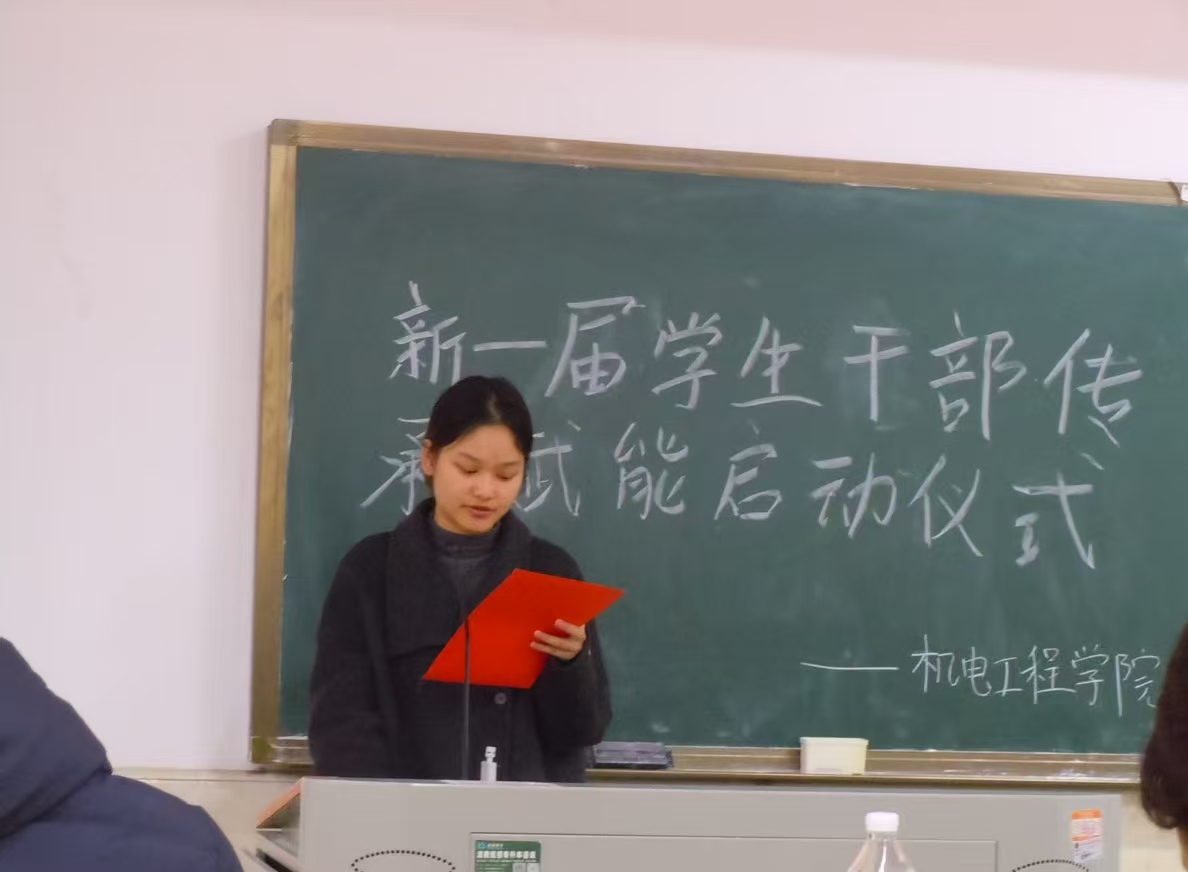 新一届学生干部传
承赋能启动仪式
——机电工程学院